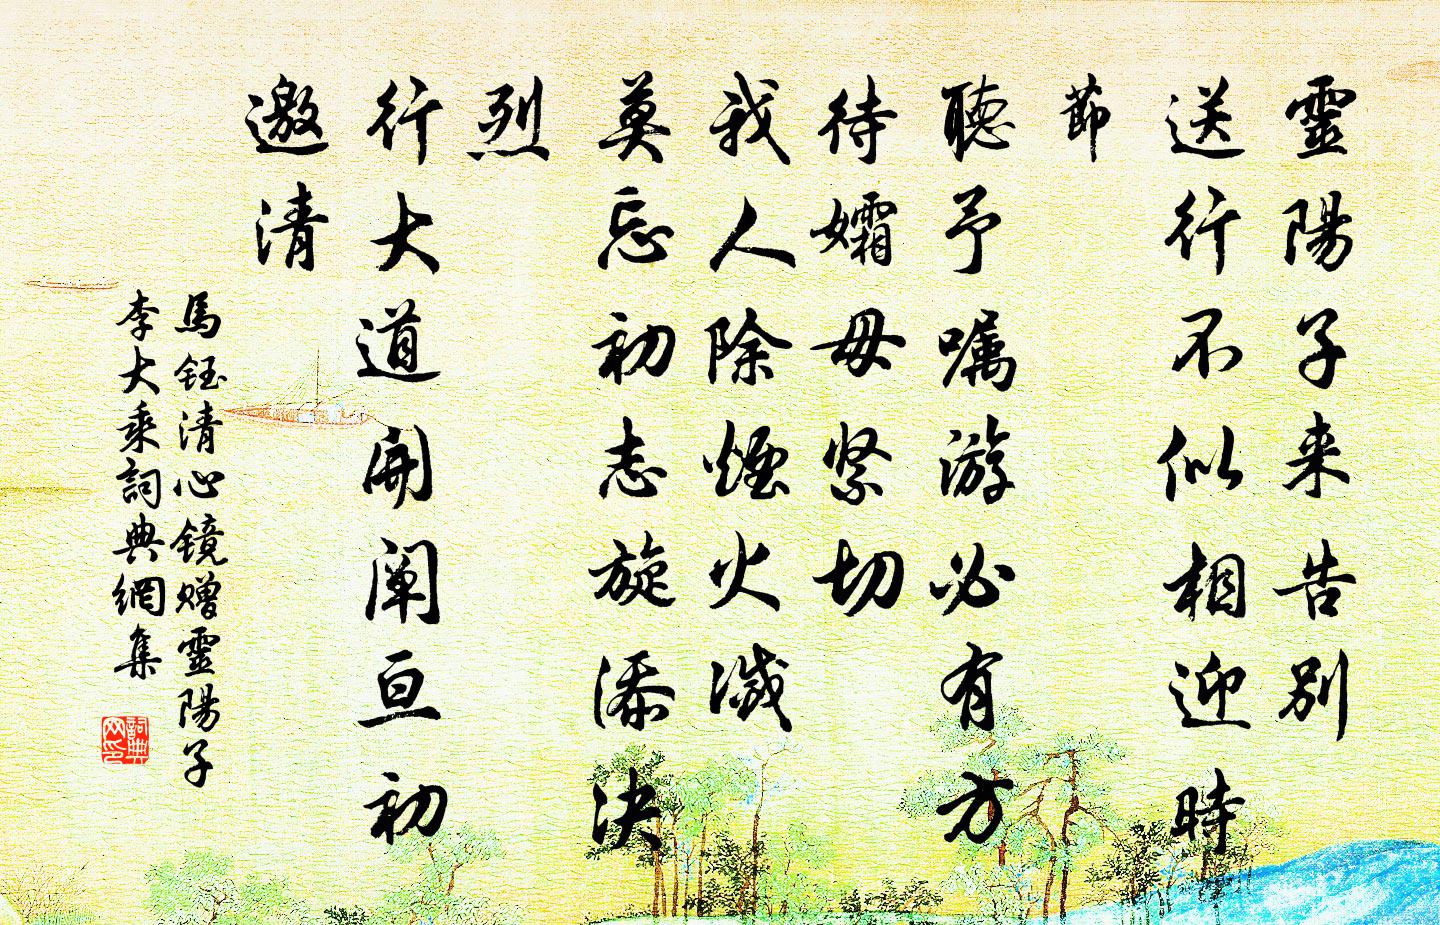 靈陽子来告别
送行不似相迎時
節
聴予嘱游必有方
待孀母紧切
我人除煙火滅
莫忘初志旋添決
烈
行大道開阐亘初
邀清
馬鈺清心镜赠靈陽子
李大乘詞典網集
詞典网印